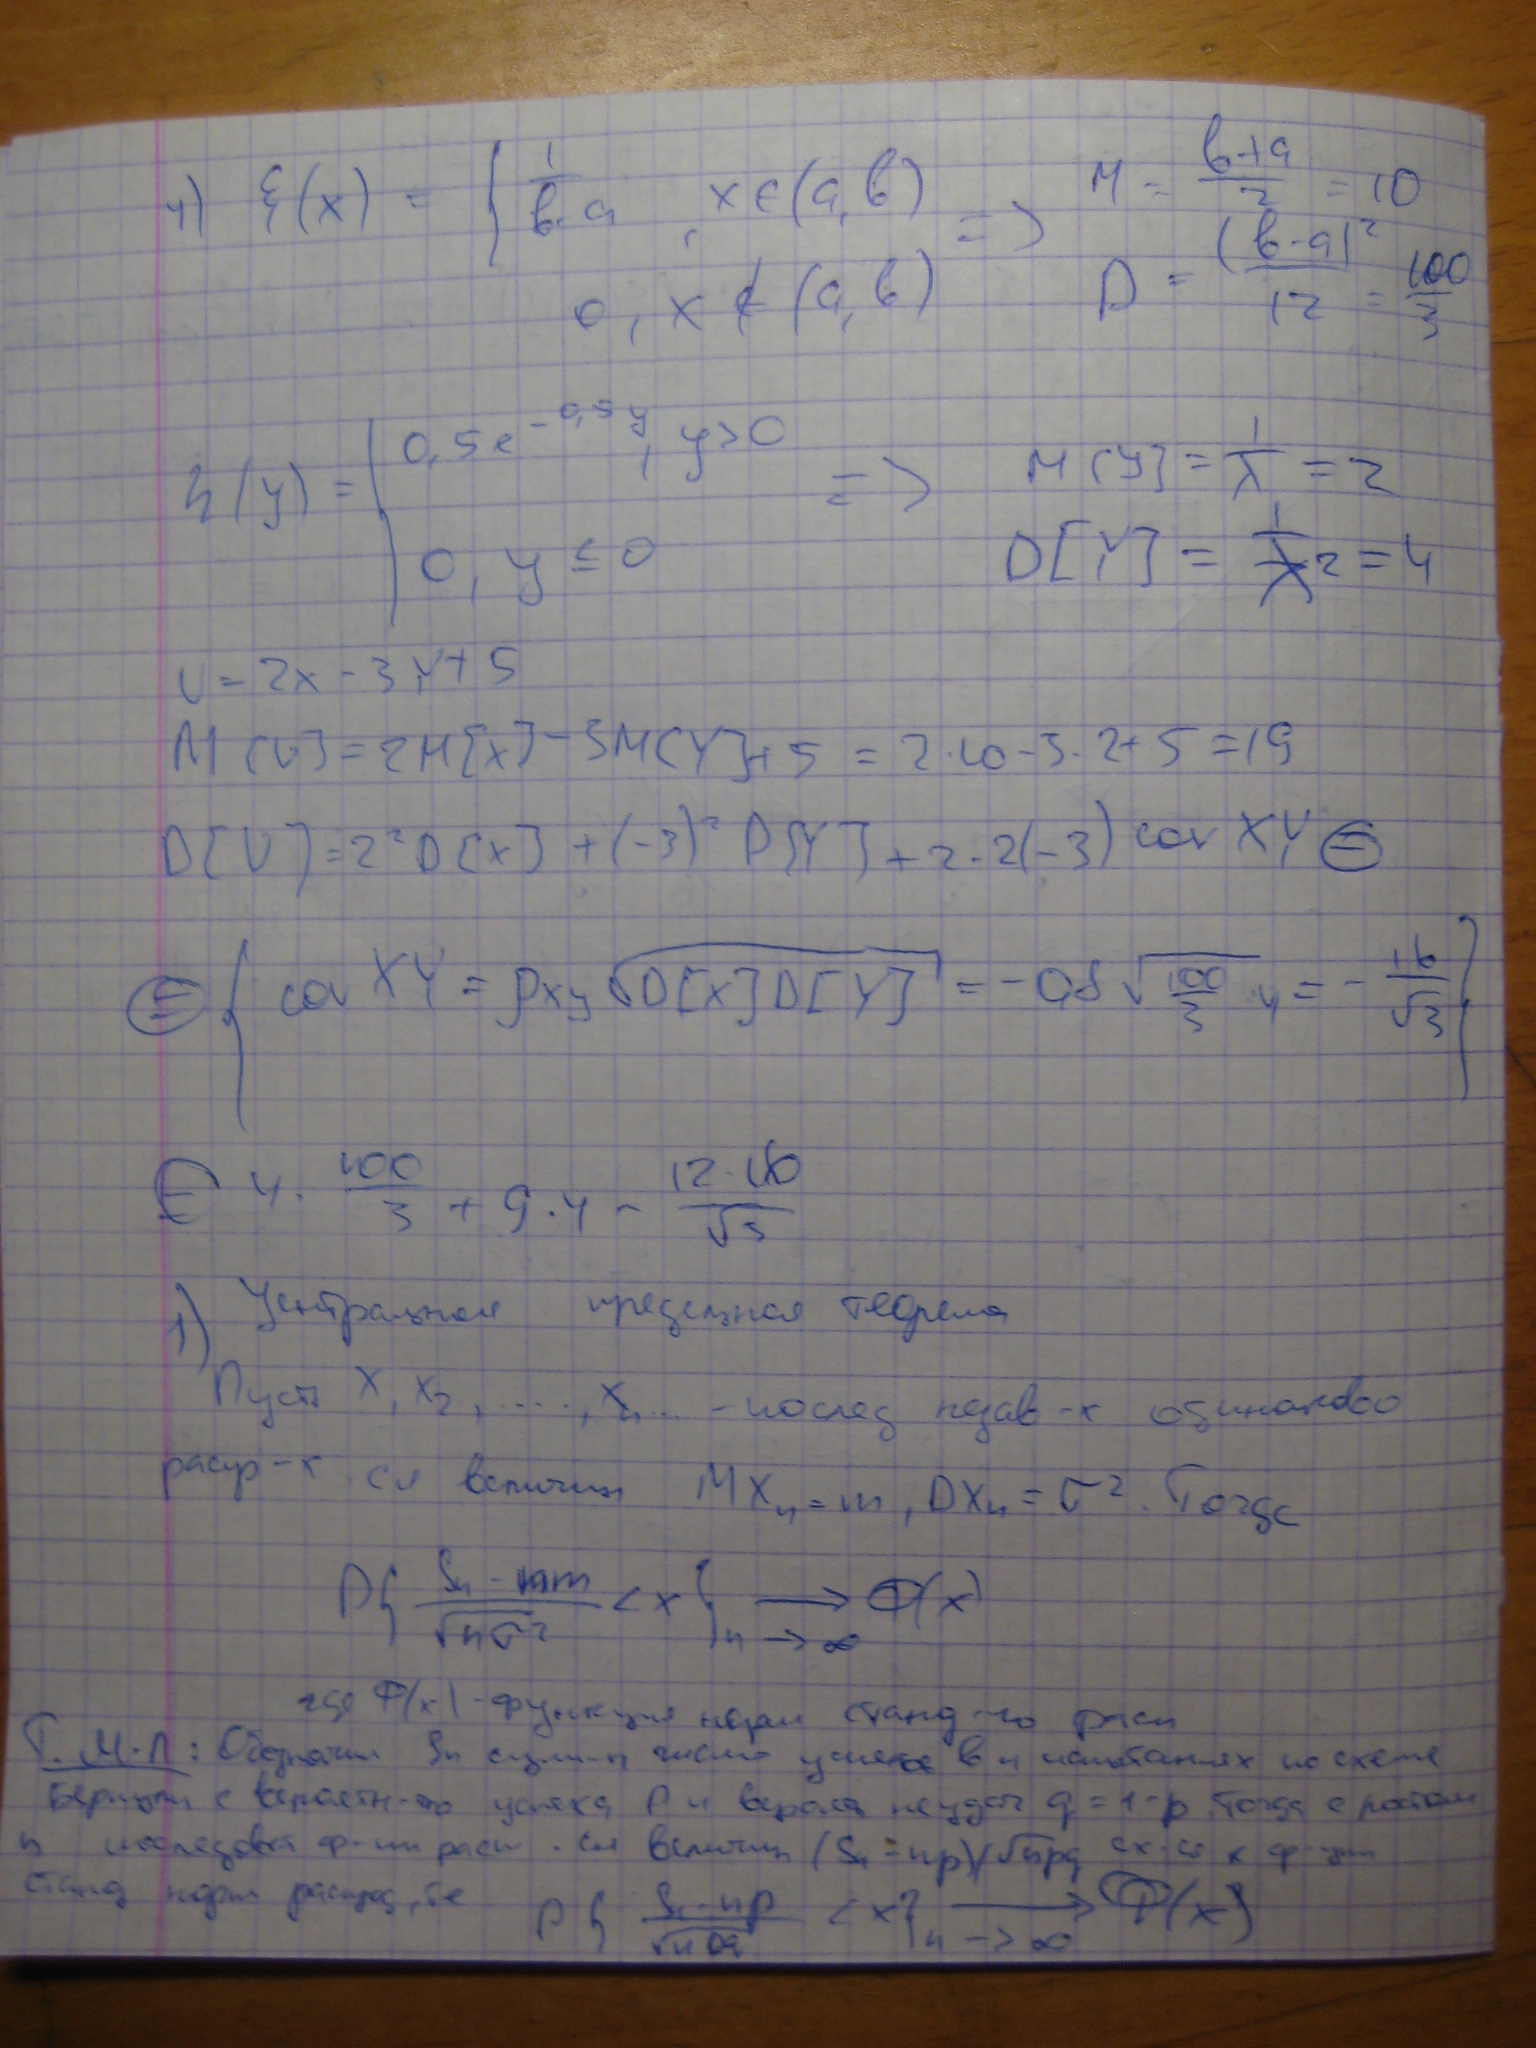 4) ξ(x) = { 1/(b-a) , x ∈ (a, b)
0, x ∉ (a, b)
=> M = (b+a)/2 = 10
D = (b-a)²/12 = 100/3
η(y) = { 0,5e^(-0,5y), y>0
0, y ≤ 0
=> M[Y] = 1/λ = 2
D[Y] = 1/λ² = 4
U = 2x - 3Y + 5
M[U] = 2M[X] - 3M[Y] + 5 = 2·10 - 3·2 + 5 = 19
D[U] = 2²D[X] + (-3)² D[Y] + 2·2(-3) cov XY ⊜
⊜ { cov XY = ρxy √(D[X]D[Y]) = -0,8 √(100/3 · 4) = - 16/√3 }
⊜ 4· 100/3 + 9·4 - 12·16/√3
1) Центральная предельная теорема
Пусть X, X₂, ...., Xn... - послед незав-х одинаково
распр-х сл величин MXn = m, DXn = σ². Тогда
P{ (Sn - nm)/√(nσ²) < x } n→∞ → Φ(x)
где Φ(x) - функция норм станд-го расп
Т. М-Л: Обозначим Sn число успехов в n испытаниях по схеме
Бернулли с вероятн-ю успеха P и вероят неудач q = 1-p Тогда с ростом
n последоват ф-ии расп. сл величин (Sn - np)/√npq сх-ся к ф-ции
станд норм распред, те P{ (Sn - np)/√npq < x } n→∞ → Φ(x)